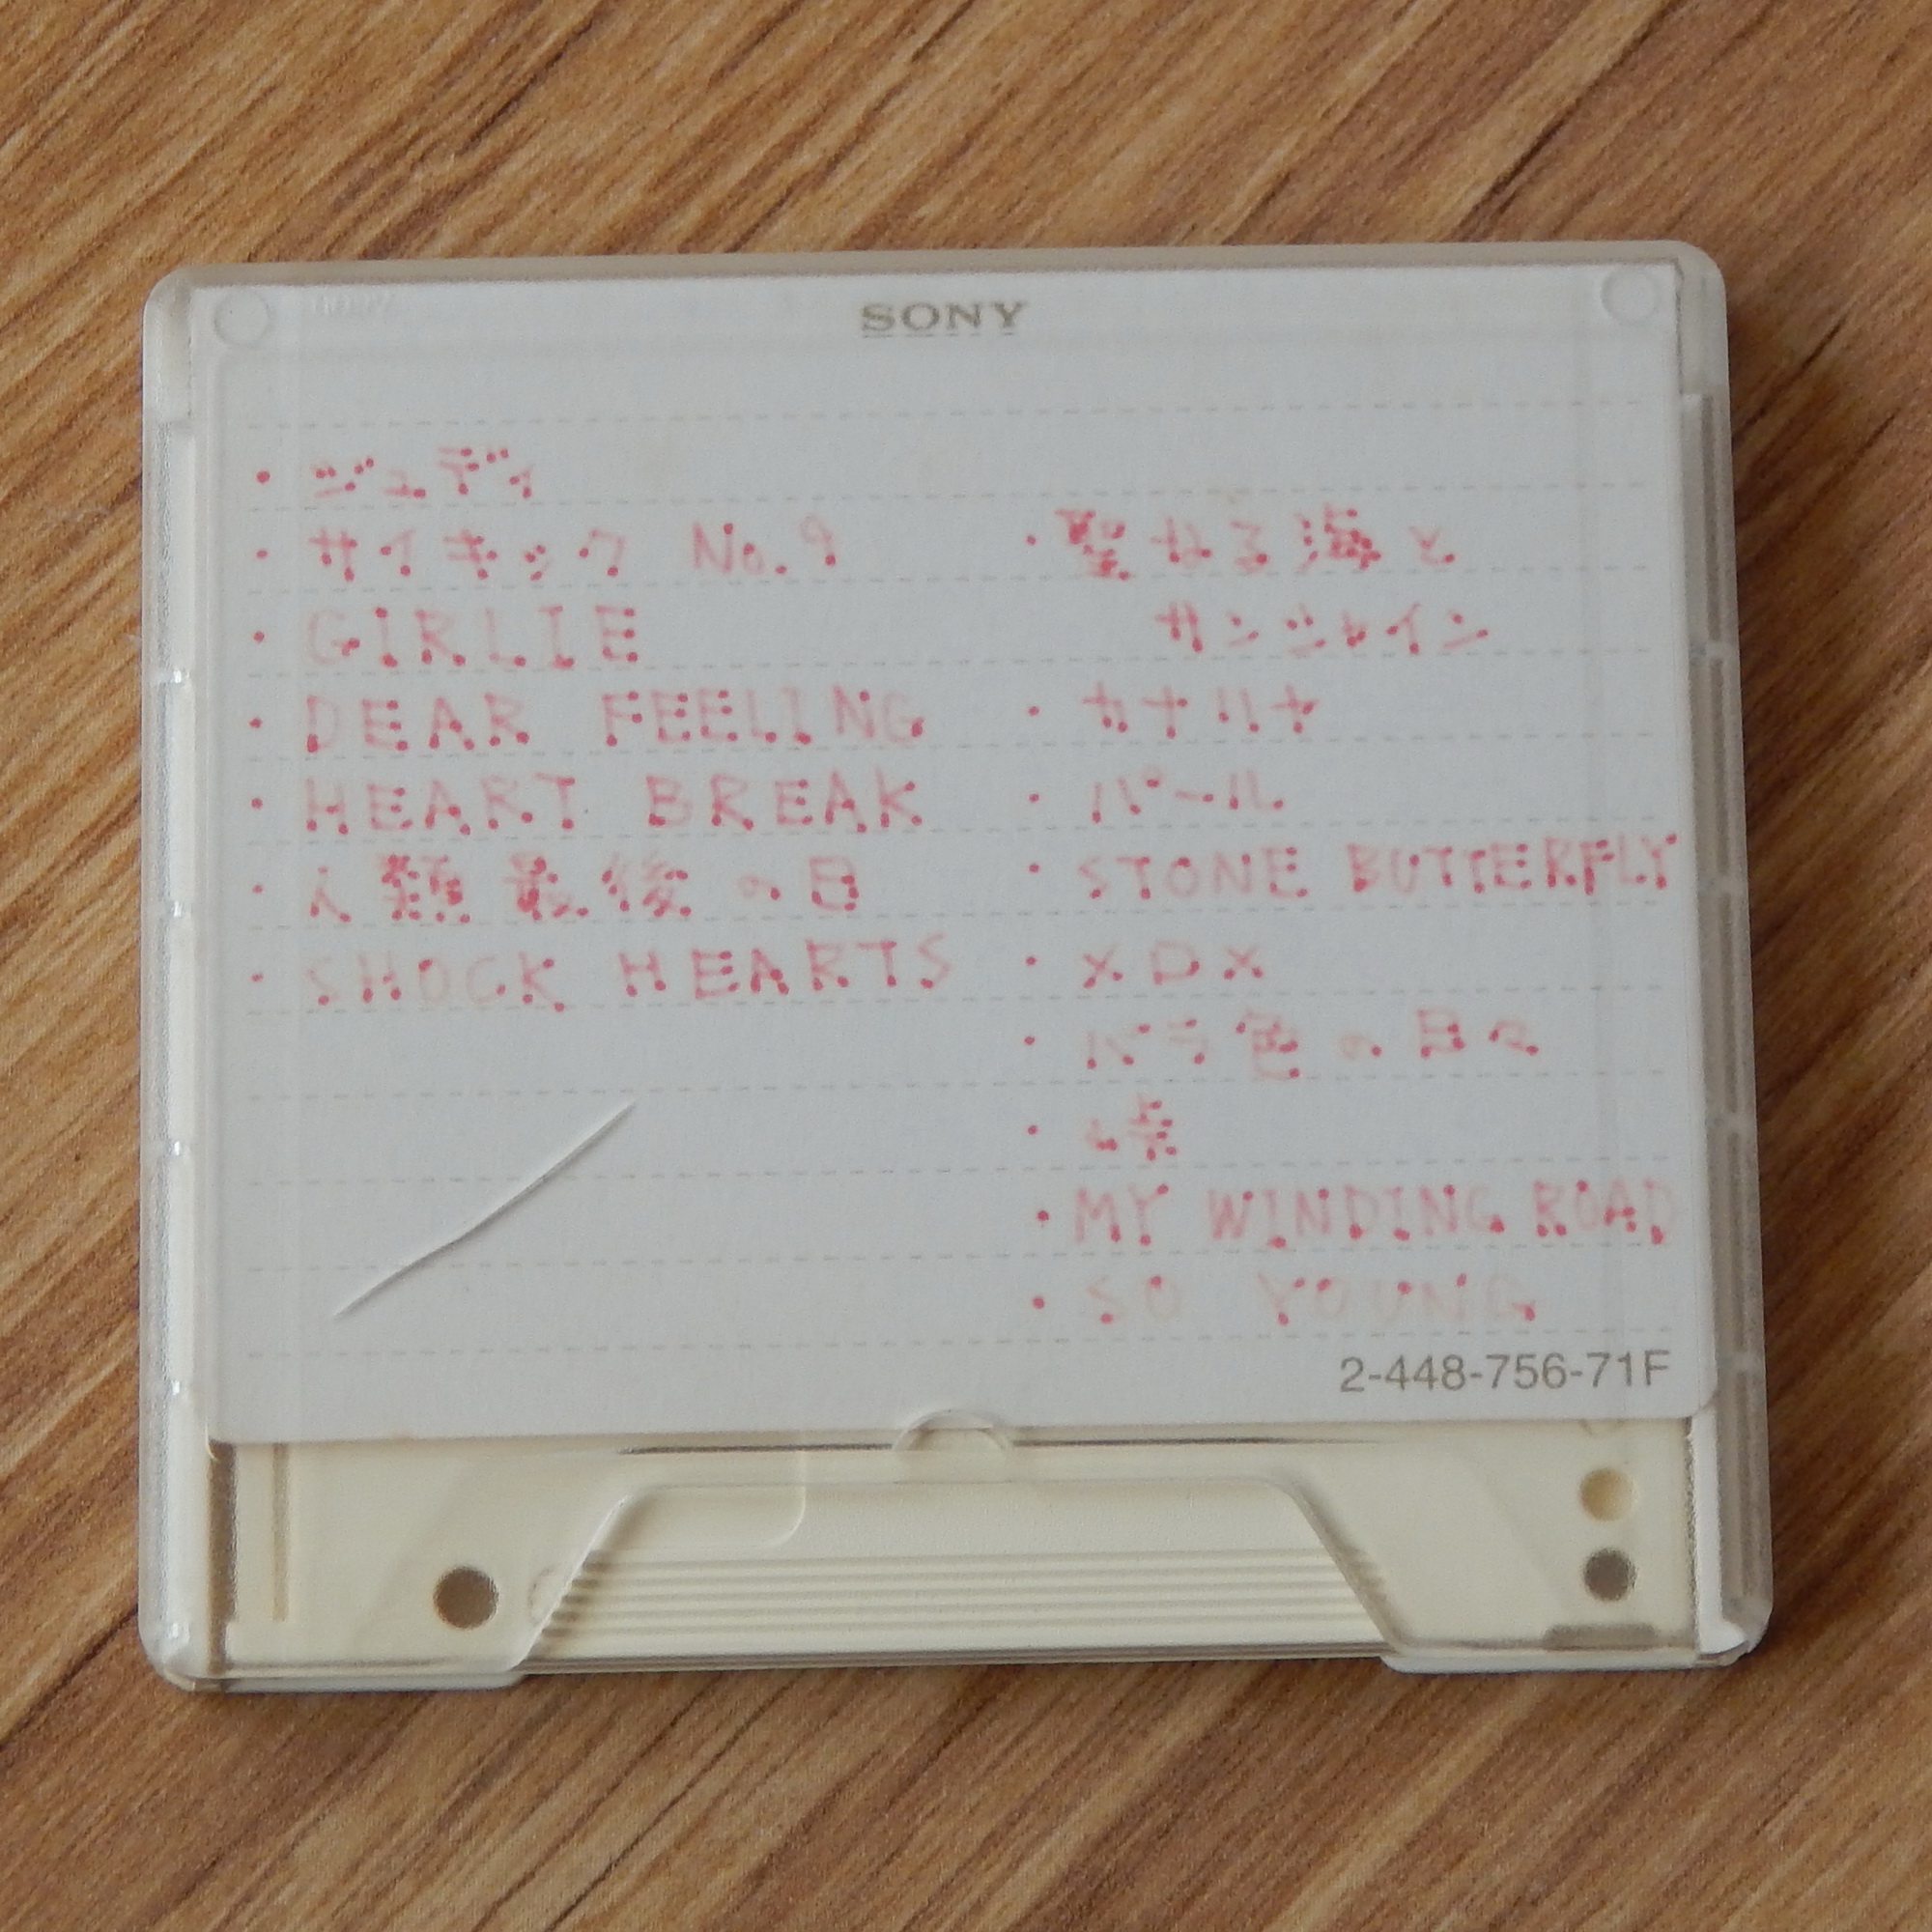 SONY
・ジュディ
・サイキック No.9
・GIRLIE
・DEAR FEELING
・HEART BREAK
・人類最後の日
・SHOCK HEARTS
・聖なる海と
サンシャイン
・カナリヤ
・パール
・STONE BUTTERFLY
・メロメ
・バラ色の日々
・峠
・MY WINDING ROAD
・SO YOUNG
2-448-756-71F